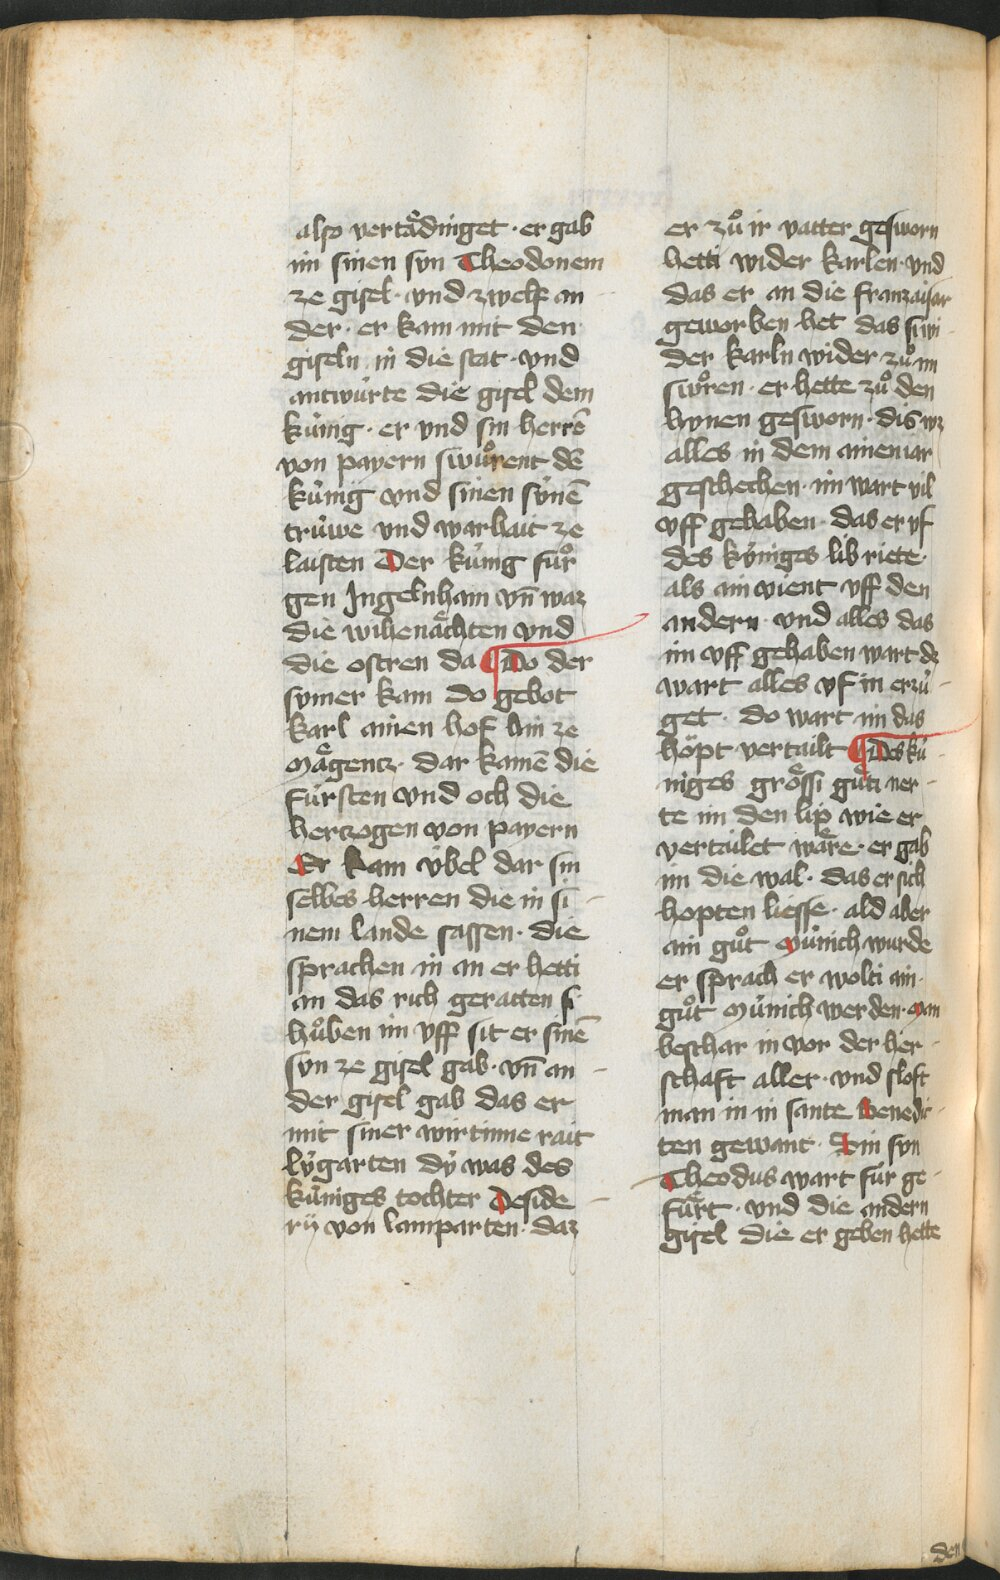 also vertaͤdinget · er gab
im sinen syn Theodonem
ze gisel · vnd zwelf an
der · er kam mit den
giseln in die stat · vnd
antwúrte die gisel dem
kúnig · er vnd sin herrē
von payern swuͦrent dē
kúnig vnd sinen súnē
trúwe vnd warhait ze
laisten Der kúnig fuͦr
gen Ingelnhaim vn̄ waz
die wihenaͤchten vnd
die ostren da ¶ Do der
symer kam do gebot
karl ainen hof hin ze
Maͤgentz · dar kamē die
fúrsten vnd och die
hertzogen von payern
Er kam úbel dar sin
selbes herren die in si
nem lande sassen · die
sprachen in an er hetti
an das rich geratten si
huͦben im vff sit er sinē
syn ze gisel gab · vn̄ an
der gisel gab das er
mit siner wirtinne rait
lýgarten dý was des
kúniges tochter Deside
rij von lamparten · daz
er zuͦ ir vatter gesworn
hetti wider karlen · vnd
das er an die franzaiser
geworben het das si wi
der karln wider zuͦ im
swuͦren · er hette zuͦ den
hynen gesworn · dis wz
alles in dem ainen iar
geschechen · im wart vil
vff gehaben · das er vf
des kýniges lib riete ·
als ain vient vff den
andern · vnd alles das
im vff gehaben wart dz
wart alles vf in erzú
get · do wart im das
hoͤpt vertailt ¶ Des kú
niges groͤssi guͤti ner
te im den lip wie er
vertailet waͤre · er gab
im die wal · das er sich
hopten liesse · ald aber
ain guͦt múnich wurde
er sprach er wolti ain
guͦt Múnich werden · man
beschar in vor der her
schaft aller · vnd sloft
man in in sante benedic
ten gewant · Sin syn
Theodus wart fúr ge
fuͤrt · vnd die andern
gisel die er geben hette
den